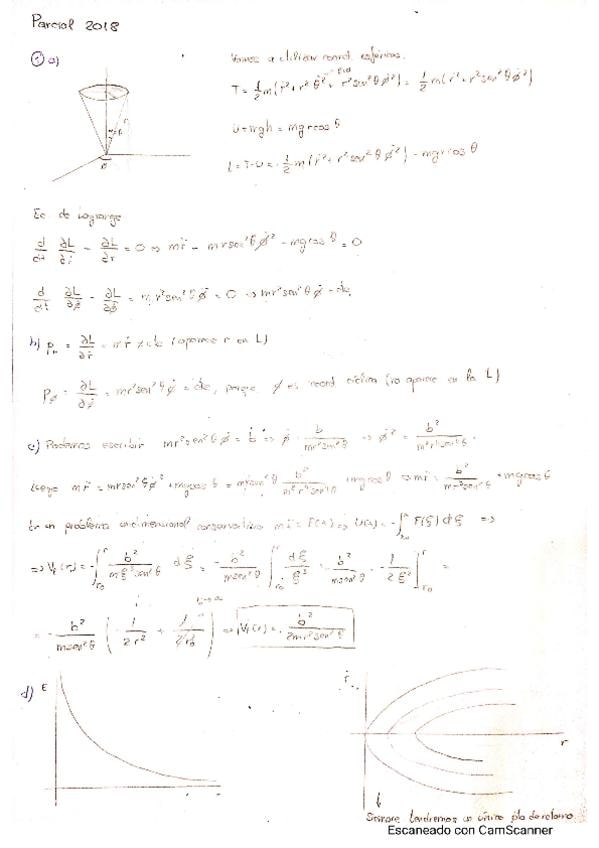 Parcial 2018
① a)
Vamos a utilizar coord. esféricas.
T = 1/2 m(ṙ² + r² θ̇² + r² sen²θ φ̇²) = 1/2 m(ṙ² + r² sen²θ φ̇²)
U = mgh = mgr cos θ
L = T-U = 1/2 m(ṙ² + r² sen²θ φ̇²) - mgr cos θ
Ec. de Lagrange
d/dt ∂L/∂ṙ - ∂L/∂r = 0 ⇒ mr̈ - mr sen²θ φ̇² - mg cos θ = 0
d/dt ∂L/∂φ̇ - ∂L/∂φ = mr² sen²θ φ̈ = 0 ⇒ mr² sen²θ φ̇ = cte
b) p_r = ∂L/∂ṙ = mṙ ≠ cte (aparece r en L)
P_φ = ∂L/∂φ̇ = mr² sen²θ φ̇ = cte, porque φ es coord cíclica (no aparece en la L)
c) Podemos escribir mr² sen²θ φ̇ = b ⇒ φ̇ = b/(mr² sen²θ) ⇒ φ̇² = b²/(m² r⁴ sen⁴θ)
Luego mr̈ = mr sen²θ φ̇² + mg cos θ = mr sen²θ b²/(m² r⁴ sen⁴θ) + mg cos θ ⇒ mr̈ = b²/(mr³ sen²θ) + mg cos θ
En un problema unidimensional conservativo mẍ = F(x) ⇒ U(x) = -∫ F(ξ) dξ ⇒
⇒ V_f(r) = -∫_{r₀}^{r} b²/(mξ³ sen²θ) dξ = -b²/(m sen²θ) ∫_{r₀}^{r} dξ/ξ³ = -b²/(m sen²θ) · -1/(2ξ²) |_{r₀}^{r} =
= -b²/(m sen²θ) (-1/(2r²) + 1/(2r₀²)) ⇒ V_f(r) = b²/(2mr² sen²θ)
d) E
ṙ
r
Siempre tendremos un único pto de retorno
Escaneado con CamScanner